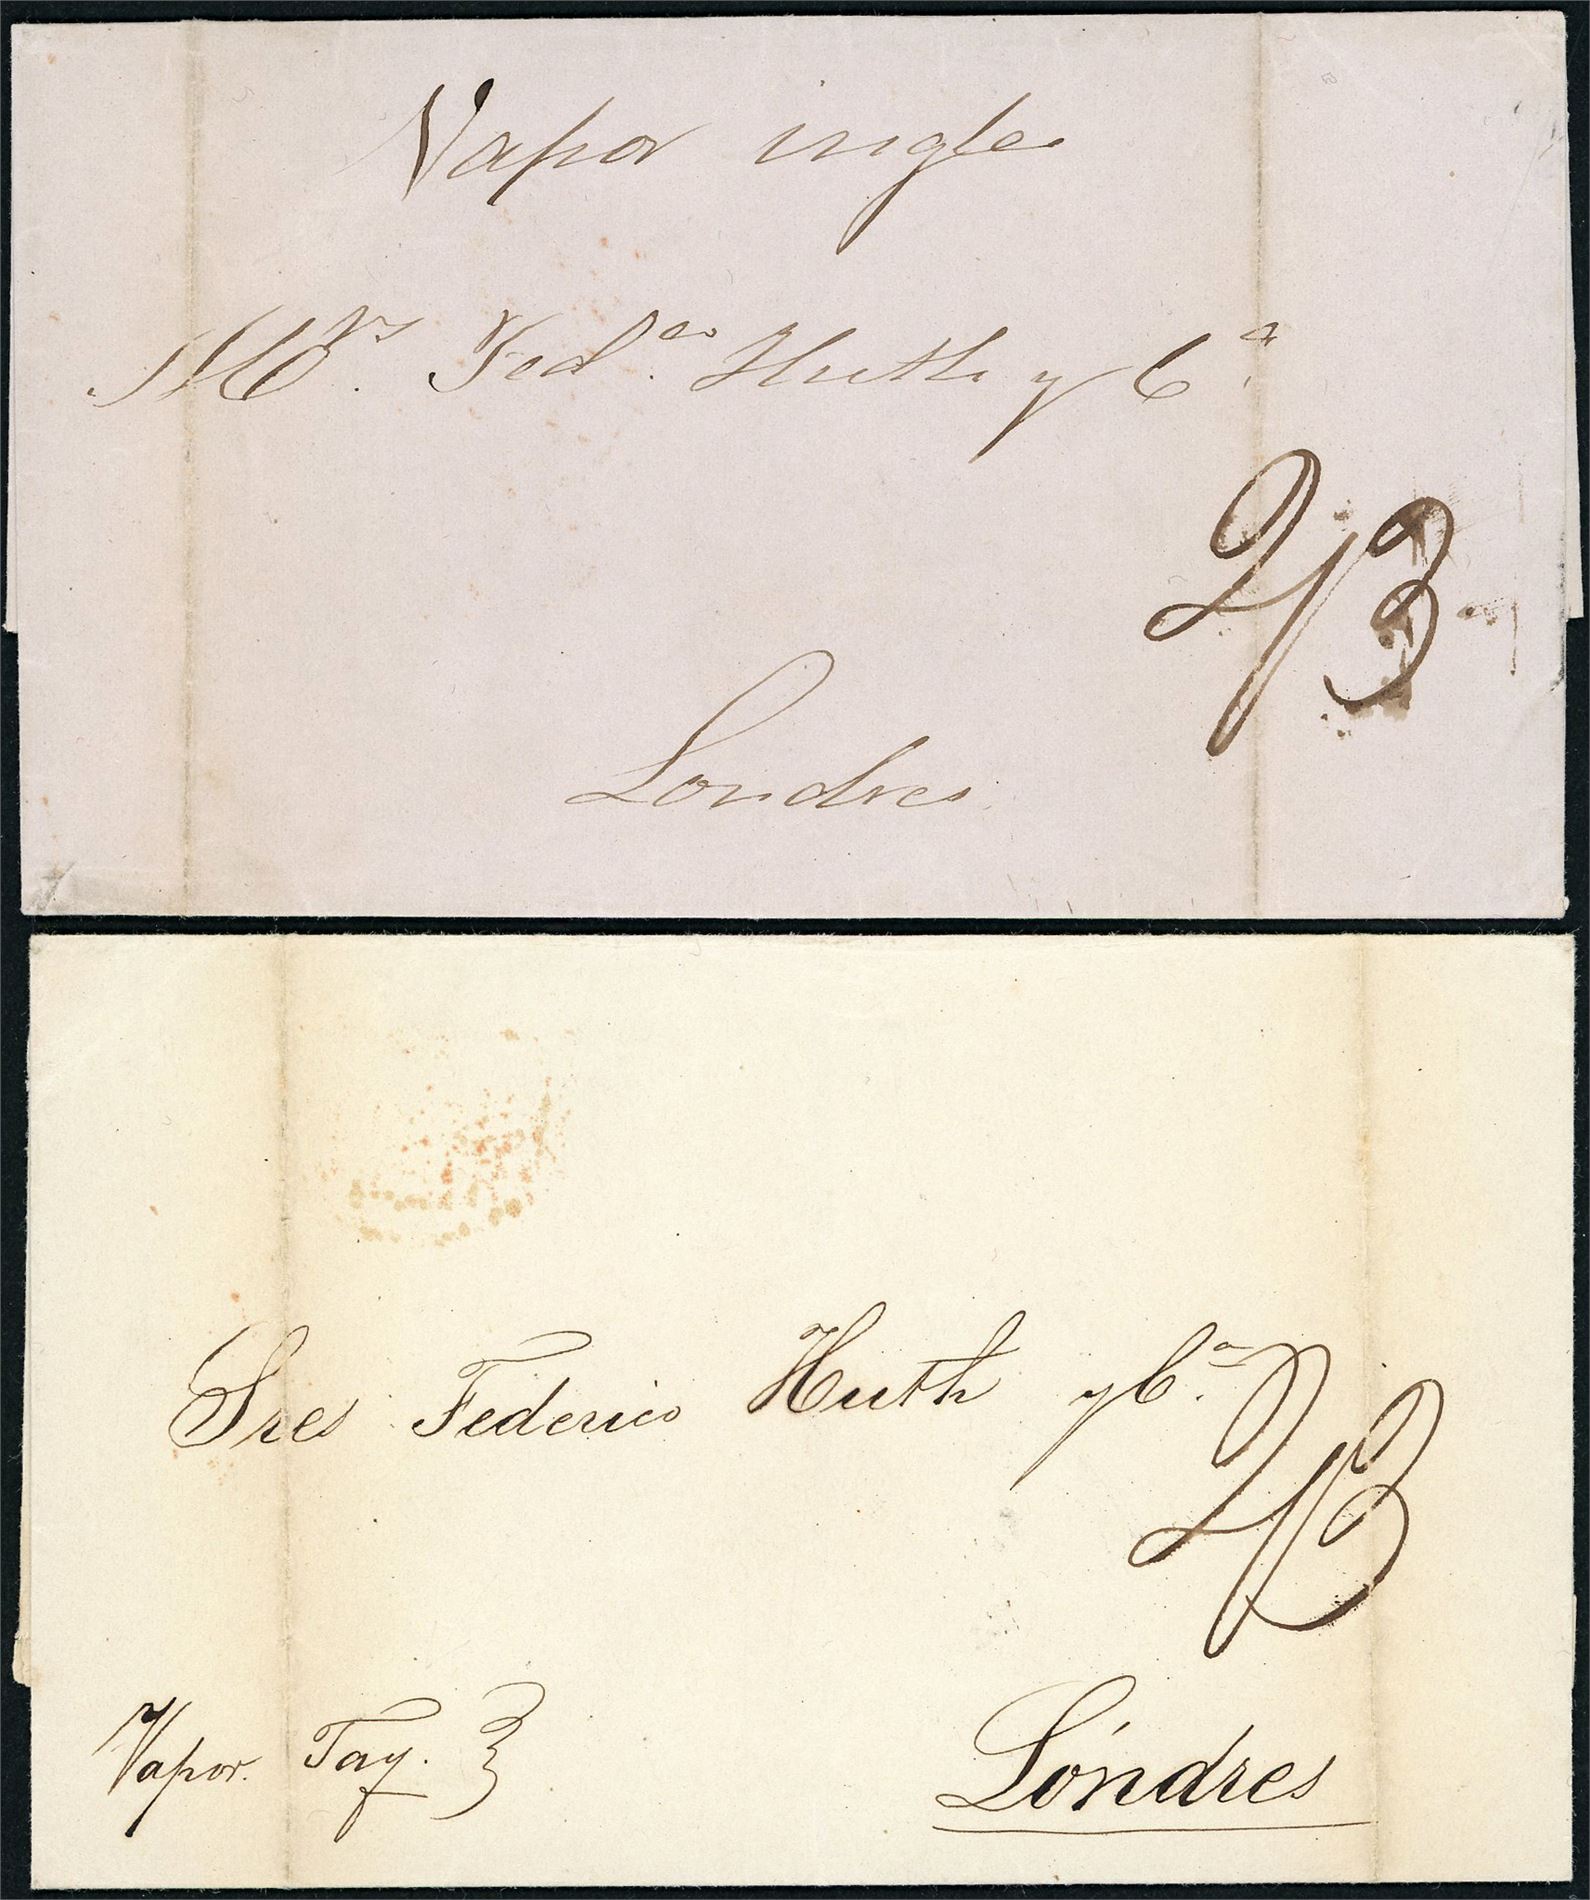 Vapor ingles
Mrs. Fed.co Huth y Ca.
2/3
Londres
Sres Federico Huth y Ca.
2/3
Vapor. Tay.
Londres